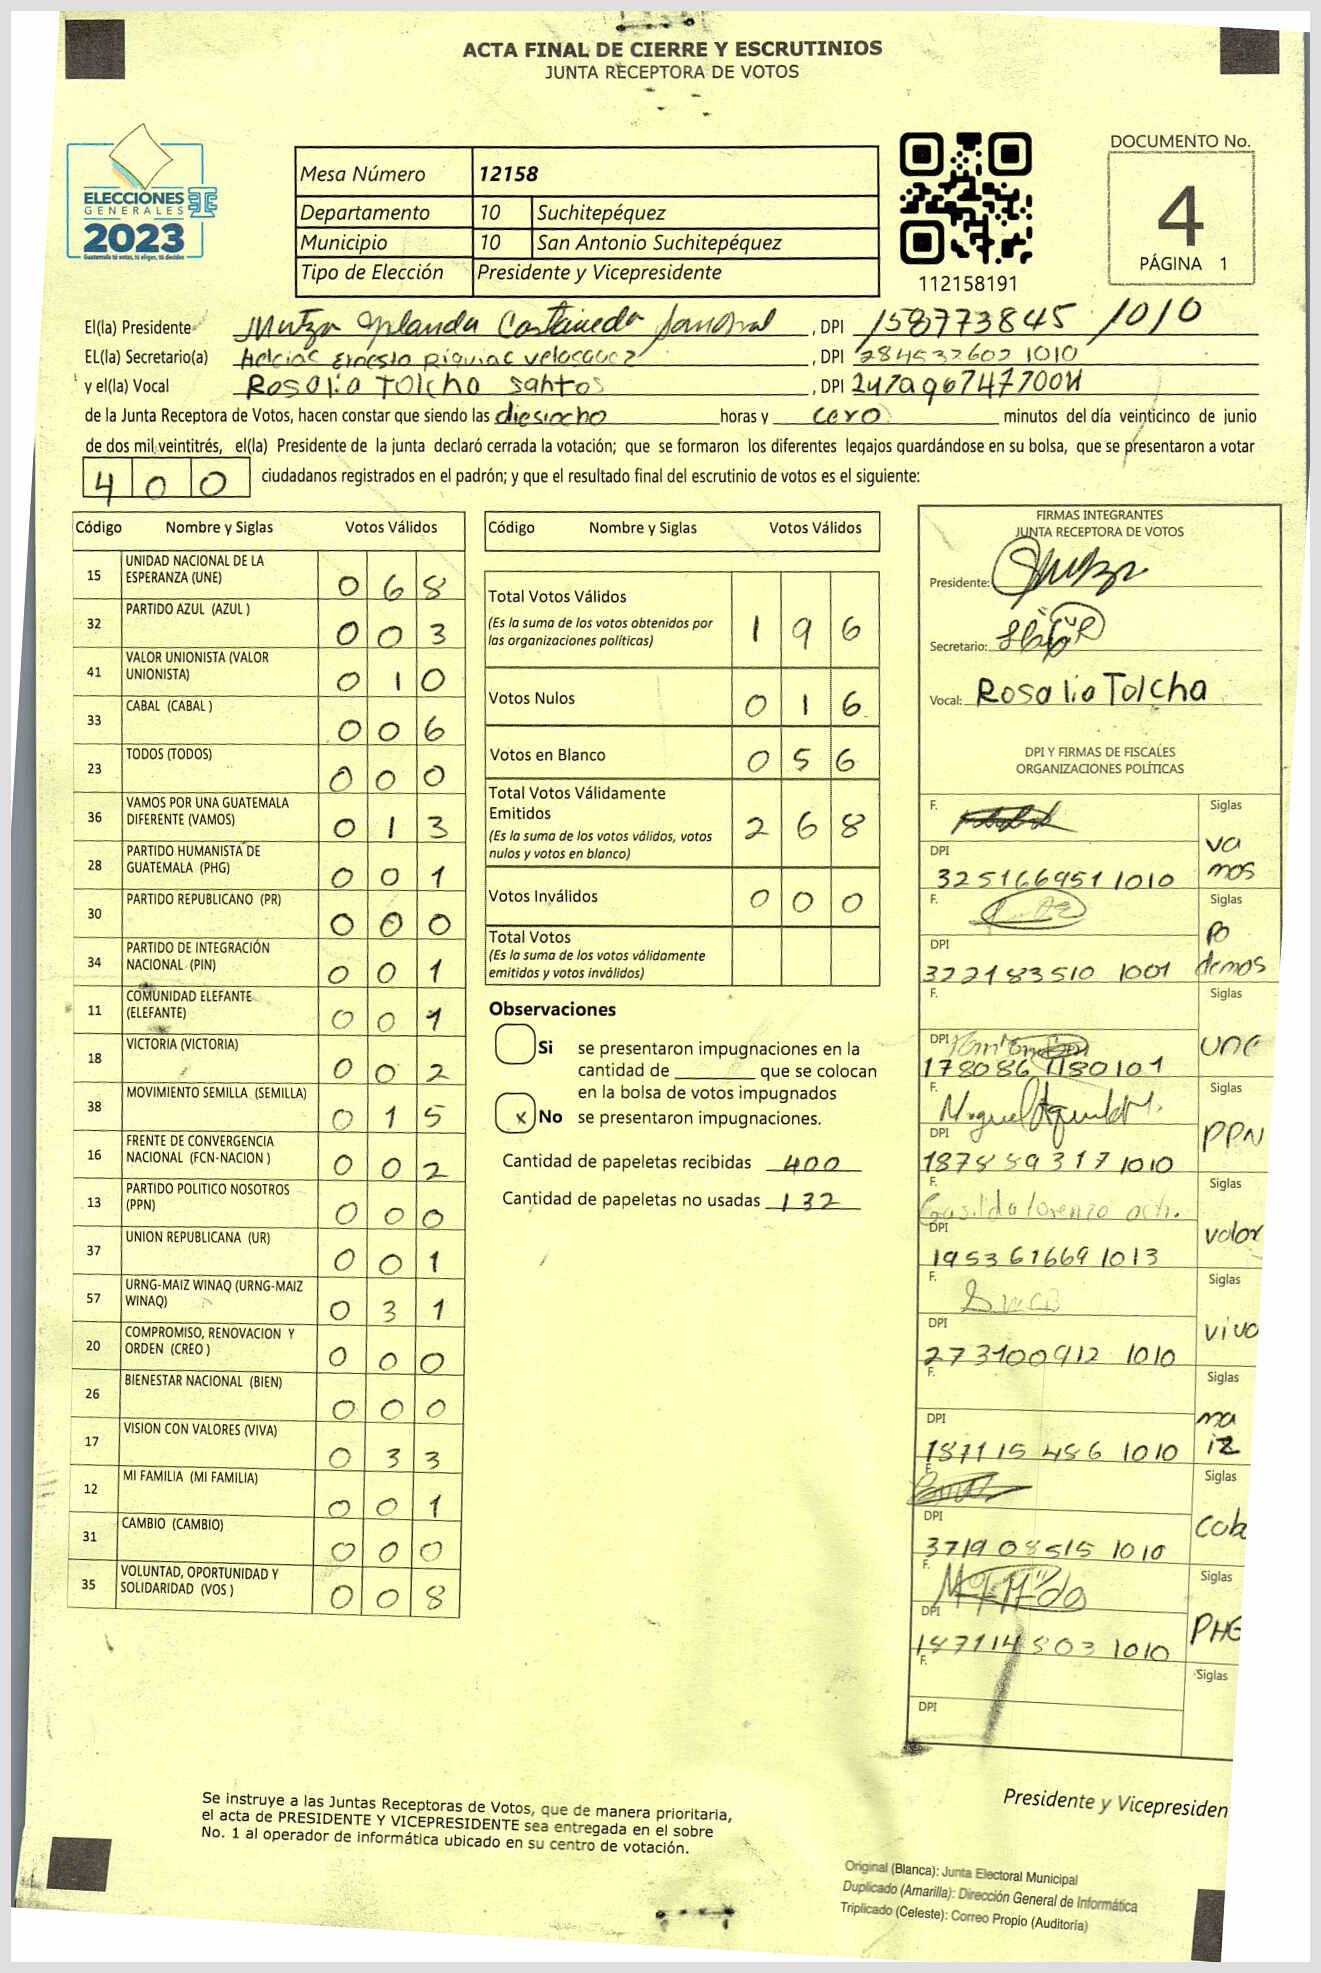 ACTA FINAL DE CIERRE Y ESCRUTINIOS
JUNTA RECEPTORA DE VOTOS
ELECCIONES
GENERALES
2023
Guatemala tú votas, tú eliges, tú decides
Mesa Número 12158
Departamento 10 Suchitepéquez
Municipio 10 San Antonio Suchitepéquez
Tipo de Elección Presidente y Vicepresidente
112158191
DOCUMENTO No.
4
PÁGINA 1
El(la) Presidente Castañeda Sandoval , DPI 158773845 1010
EL(la) Secretario(a) Ernesto Riquiac Velasquez , DPI 284532602 1010
y el(la) Vocal Rosalia Tolcha Santos , DPI
de la Junta Receptora de Votos, hacen constar que siendo las diesiocho horas y cero minutos del día veinticinco de junio
de dos mil veintitrés, el(la) Presidente de la junta declaró cerrada la votación; que se formaron los diferentes legajos guardándose en su bolsa, que se presentaron a votar
400 ciudadanos registrados en el padrón; y que el resultado final del escrutinio de votos es el siguiente:
Código Nombre y Siglas Votos Válidos
15 UNIDAD NACIONAL DE LA ESPERANZA (UNE) 068
32 PARTIDO AZUL (AZUL ) 003
41 VALOR UNIONISTA (VALOR UNIONISTA) 010
33 CABAL (CABAL ) 006
23 TODOS (TODOS) 000
36 VAMOS POR UNA GUATEMALA DIFERENTE (VAMOS) 013
28 PARTIDO HUMANISTA DE GUATEMALA (PHG) 001
30 PARTIDO REPUBLICANO (PR) 000
34 PARTIDO DE INTEGRACIÓN NACIONAL (PIN) 001
11 COMUNIDAD ELEFANTE (ELEFANTE) 001
18 VICTORIA (VICTORIA) 002
38 MOVIMIENTO SEMILLA (SEMILLA) 015
16 FRENTE DE CONVERGENCIA NACIONAL (FCN-NACION ) 002
13 PARTIDO POLITICO NOSOTROS (PPN) 000
37 UNION REPUBLICANA (UR) 001
57 URNG-MAIZ WINAQ (URNG-MAIZ WINAQ) 031
20 COMPROMISO, RENOVACION Y ORDEN (CREO ) 000
26 BIENESTAR NACIONAL (BIEN) 000
17 VISION CON VALORES (VIVA) 033
12 MI FAMILIA (MI FAMILIA) 001
31 CAMBIO (CAMBIO) 000
35 VOLUNTAD, OPORTUNIDAD Y SOLIDARIDAD (VOS ) 008
Código Nombre y Siglas Votos Válidos
Total Votos Válidos 196
(Es la suma de los votos obtenidos por
las organizaciones políticas)
Votos Nulos 016
Votos en Blanco 056
Total Votos Válidamente
Emitidos 268
(Es la suma de los votos válidos, votos
nulos y votos en blanco)
Votos Inválidos 000
Total Votos
(Es la suma de los votos válidamente
emitidos y votos inválidos)
Observaciones
Si se presentaron impugnaciones en la
cantidad de ________ que se colocan
en la bolsa de votos impugnados
x No se presentaron impugnaciones.
Cantidad de papeletas recibidas 400
Cantidad de papeletas no usadas 132
FIRMAS INTEGRANTES
JUNTA RECEPTORA DE VOTOS
Presidente:
Secretario:
Vocal: Rosalia Tolcha
DPI Y FIRMAS DE FISCALES
ORGANIZACIONES POLÍTICAS
F. Siglas
vamos
DPI
325166951 1010
F. Siglas
Podemos
DPI
322183510 1001
F. Siglas
UNE
DPI
178086 1180101
F. Siglas
PPN
DPI
187889317 1010
F. Siglas
valor
DPI
195361669 1013
F. Siglas
vivo
DPI
273100912 1010
F. Siglas
maiz
DPI
187115486 1010
F. Siglas
DPI
371908515 1010
F. Siglas
PHG
DPI
187114803 1010
F. Siglas
DPI
Presidente y Vicepresiden
Se instruye a las Juntas Receptoras de Votos, que de manera prioritaria,
el acta de PRESIDENTE Y VICEPRESIDENTE sea entregada en el sobre
No. 1 al operador de informática ubicado en su centro de votación.
Original (Blanca): Junta Electoral Municipal
Duplicado (Amarilla): Dirección General de Informática
Triplicado (Celeste): Correo Propio (Auditoría)